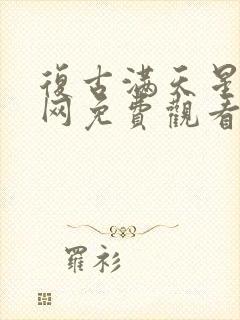 復古滿天星
网免費觀看
羅衫